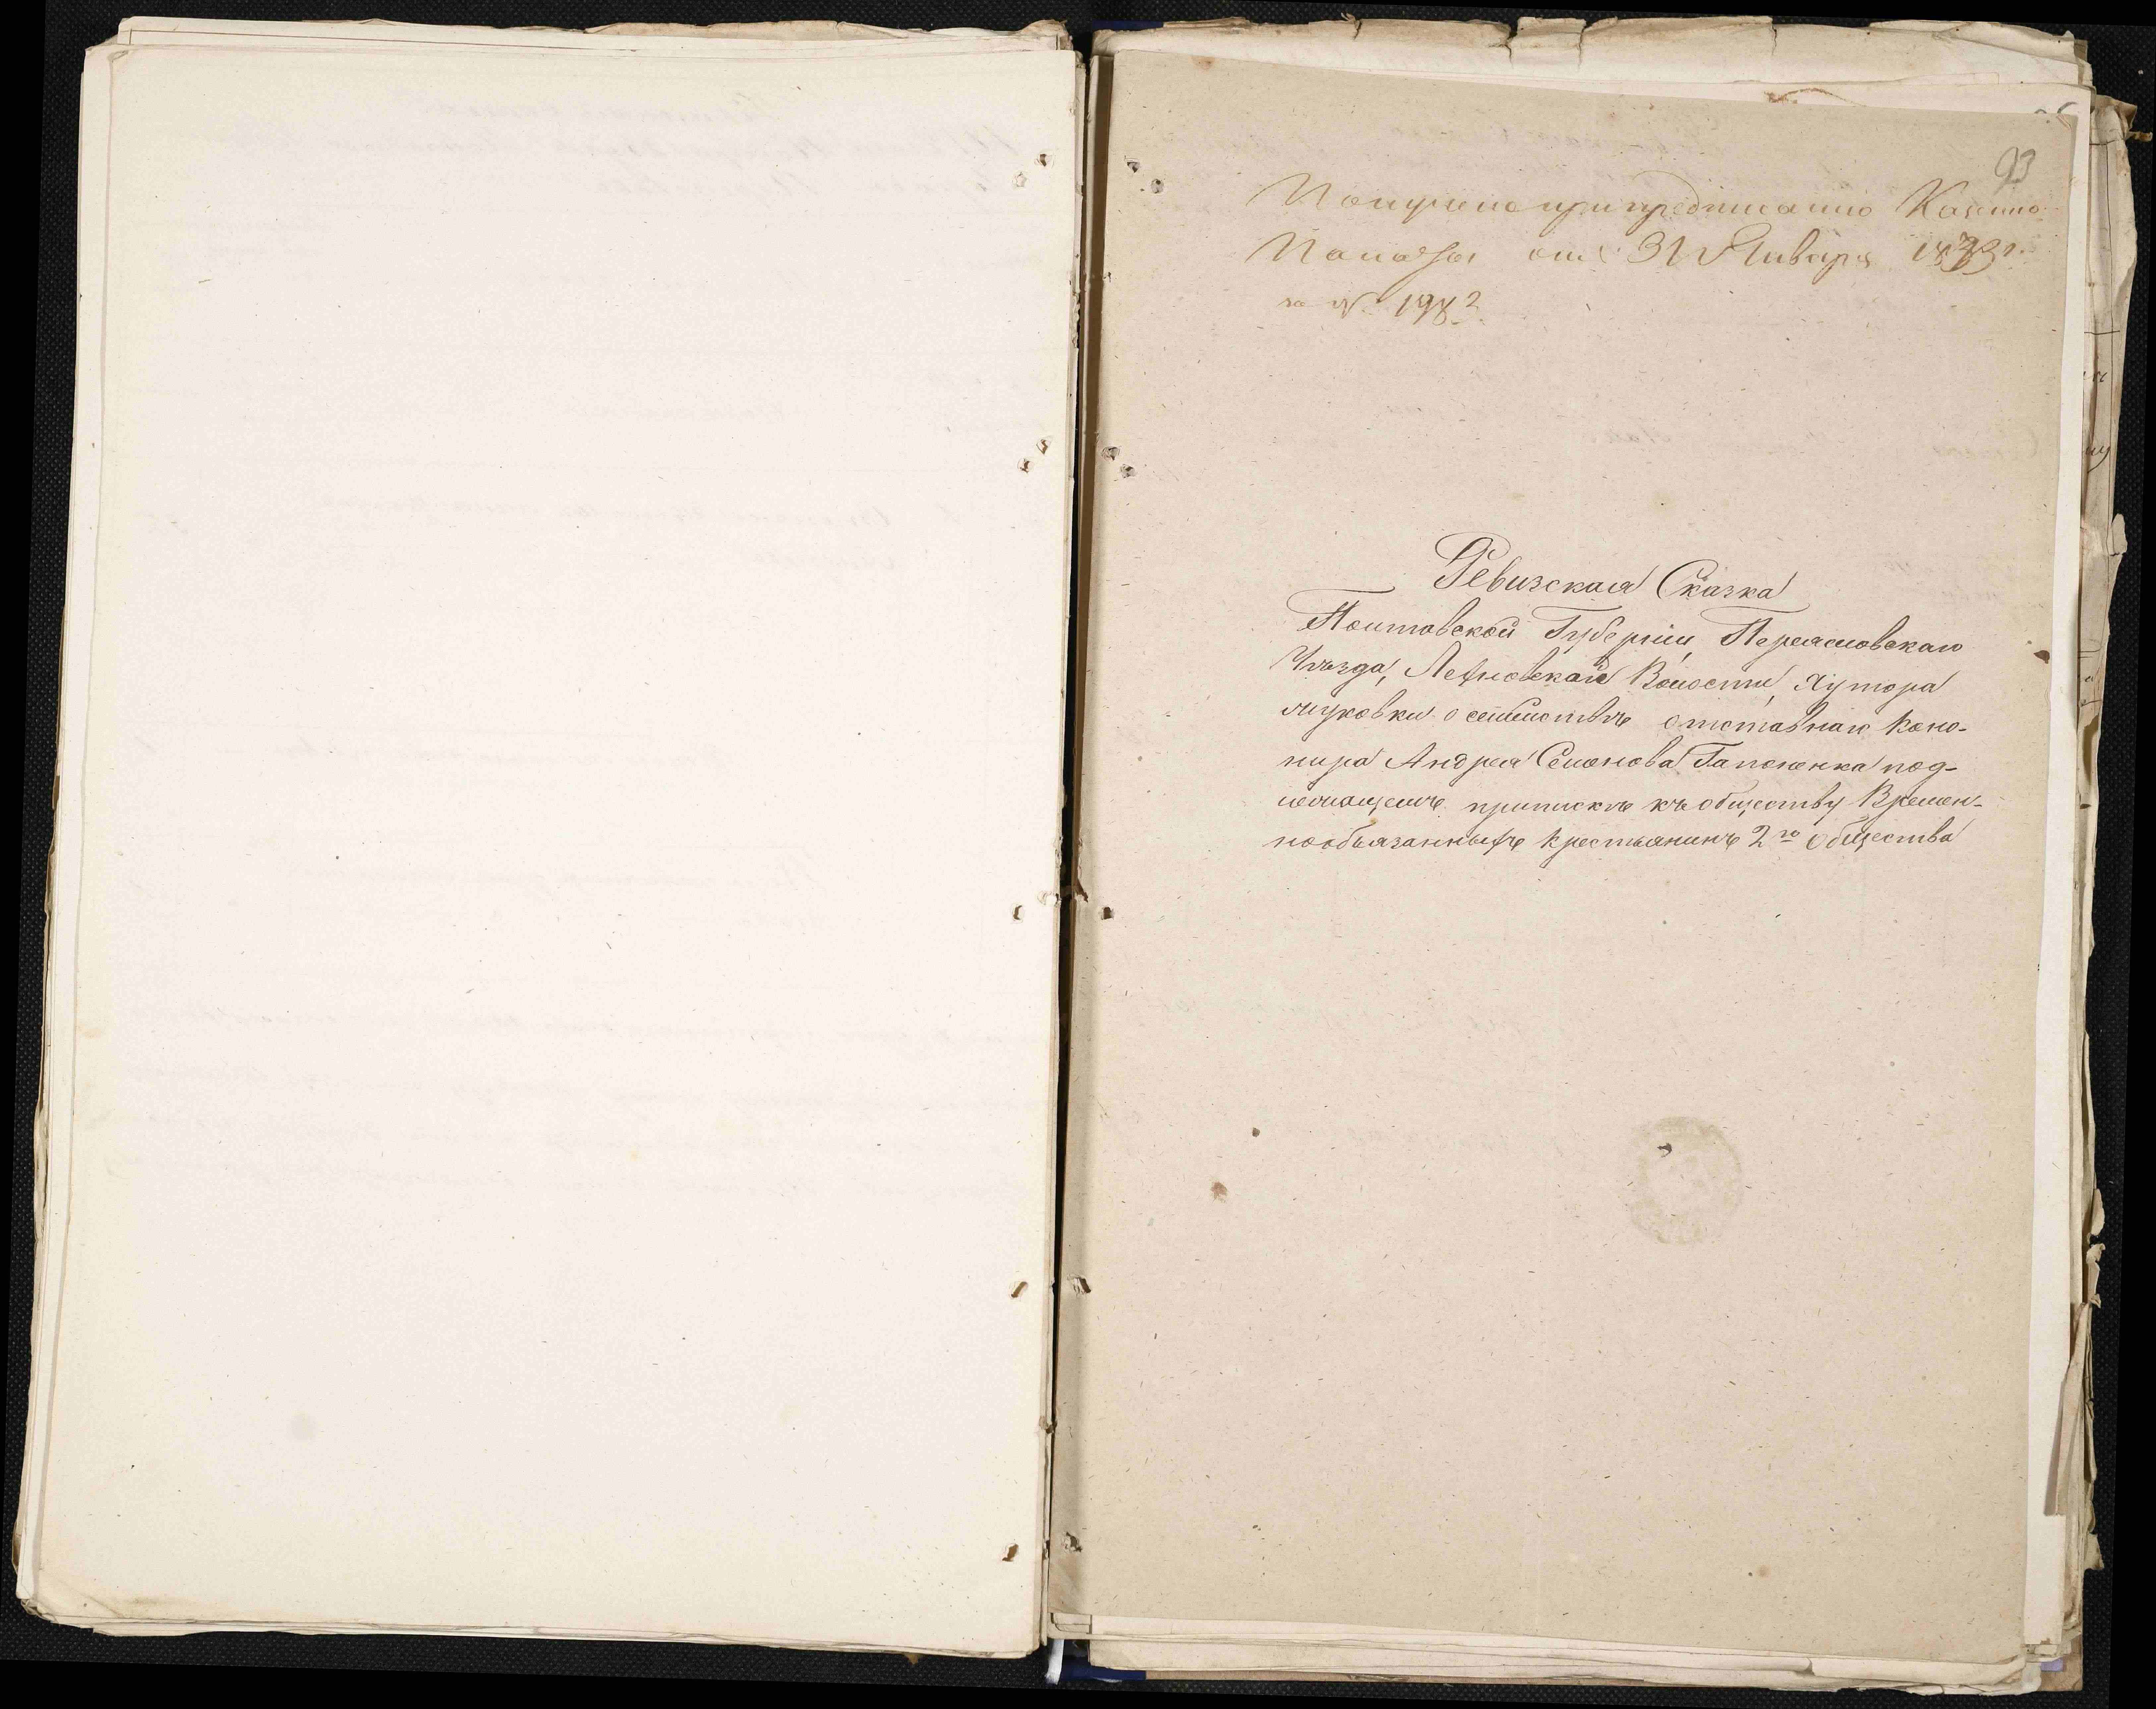 93
Получено при предписанию Казенно
Палаты отъ 31 Января 1873 г.
за № 1982
Ревизская Сказка
Полтавской Губерніи, Переяславскаго
Уѣзда, Волости, Хутора
о семействѣ отставнаго Коно-
нира Андрея Семенова Гапоненка под-
лежащемъ припискѣ къ обществу Времен-
нообьязанныхъ крестьянинъ 2го Общества